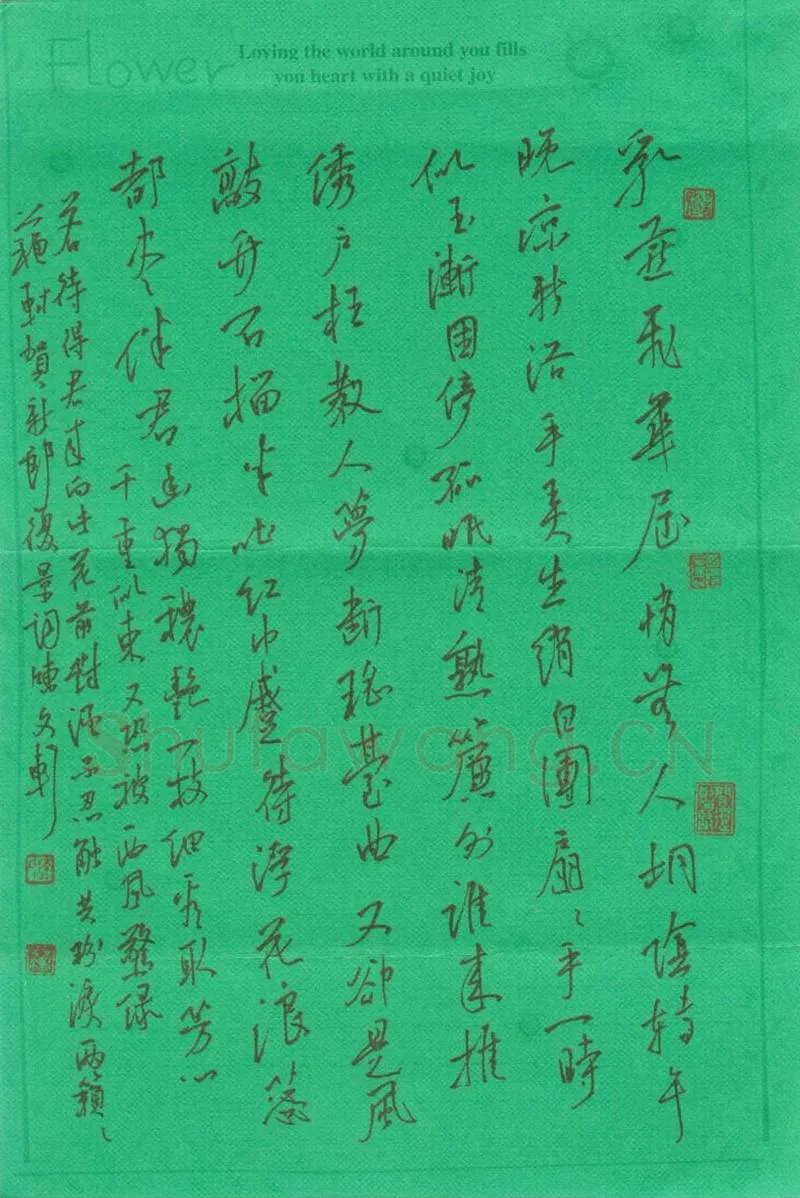 Flower
Loving the world around you fills
you heart with a quiet joy
乳燕飛華屋悄無人桐陰轉午
晚涼新浴手弄生綃白團扇〻手一時
似玉漸困倚孤眠清熟簾外誰來推
繡戶枉教人夢斷瑤臺曲又卻是風
敲竹石榴半吐紅巾蹙待浮花浪蕊
都盡伴君幽獨穠艷一枝細看取芳心
千重似束又恐被西風驚綠
若待得君來向此花前對酒不忍觸共粉淚兩簌〻
蘇軾賀新郎夏景詞陳文軒
Shufawang.CN